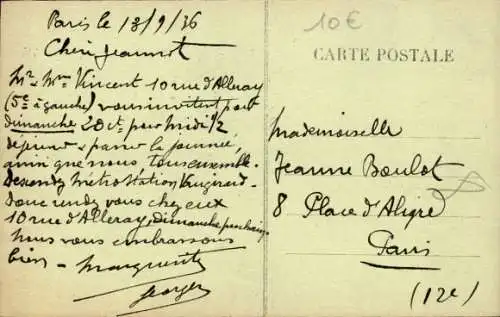 Paris le 13/9/36
Chère Jeannot
Mr & Mme Vincent 10 rue d'Alleray
(5e à gauche) vous invitent pour
dimanche 20 ct pour midi 1/2
déjeuner & passer la journée,
ainsi que nous tous ensemble.
Descendez métro Station Vaugirard.
Donc rendez vous chez eux
10 rue d'Alleray, dimanche prochain.
Nous vous embrassons
bien - Marguerite
Georges
10€
CARTE POSTALE
Mademoiselle
Jeanne Boulot
8 Place d'Aligre
Paris
(12e)